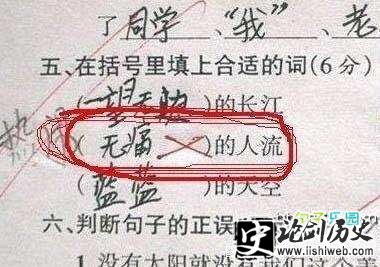 了同学、“我”、老
五、在括号里填上合适的词(6分)
(一望无
)的长江
(无痛
)的人流
(蓝蓝
)的天空
六、判断句子的正误
1.没有太阳就没有我们这个美
论剑历史
www.lishiweb.com